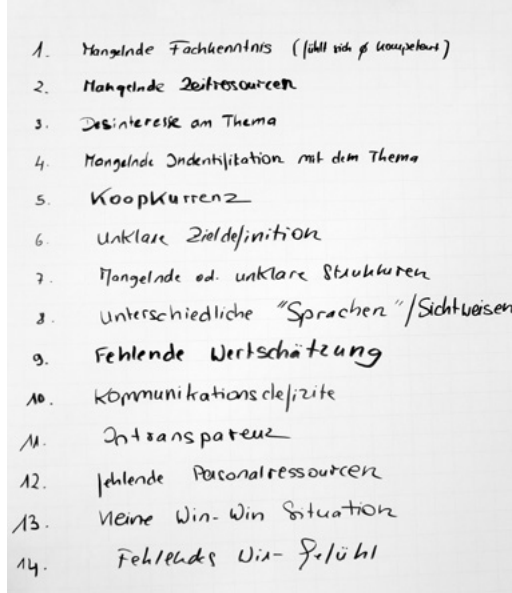 1. Mangelnde Fachkenntnis (fühlt sich ∅ kompetent)
2. Mangelnde Zeitresourcen
3. Desinteresse am Thema
4. Mangelnde Indentifitation mit dem Thema
5. Koopkurrenz
6. unklare Zieldefinition
7. Mangelnde od. unklare Strukturen
8. unterschiedliche "Sprachen"/Sichtweisen
9. Fehlende Wertschätzung
10. Kommunikationsdefizite
11. Intransparenz
12. fehlende Personalressourcen
13. Keine Win-Win Situation
14. Fehlendes Wir-Gefühl